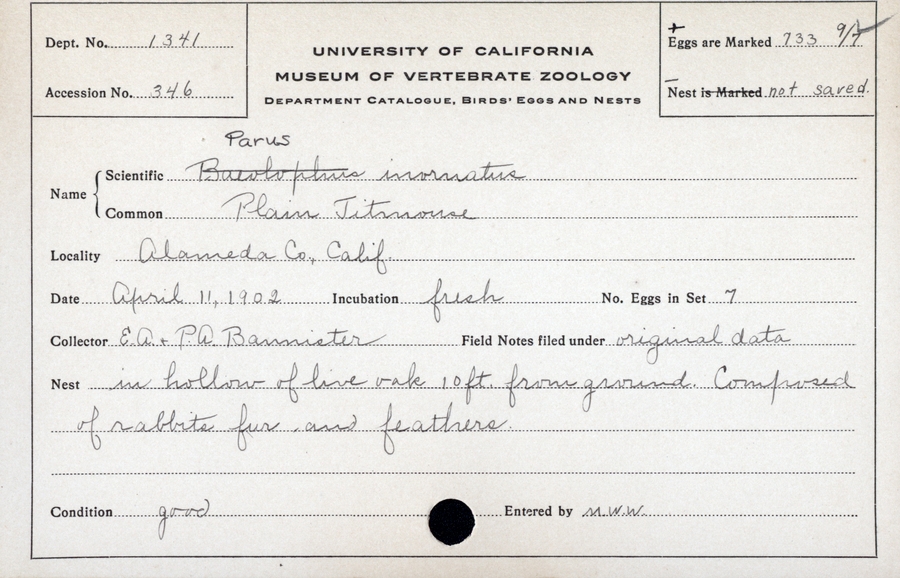 Dept. No. 1341
Accession No. 346
UNIVERSITY OF CALIFORNIA
MUSEUM OF VERTEBRATE ZOOLOGY
DEPARTMENT CATALOGUE, BIRDS' EGGS AND NESTS
Eggs are Marked 733 9/7
Nest is Marked not saved.
Parus
Name Scientific Baeolophus inornatus
Common Plain Titmouse
Locality Alameda Co., Calif.
Date April 11, 1902 Incubation fresh No. Eggs in Set 7
Collector E.A. + P.A. Bannister Field Notes filed under original data
Nest in hollow of live oak 10ft. from ground. Composed
of rabbits fur and feathers.
Condition good Entered by M.W.W.